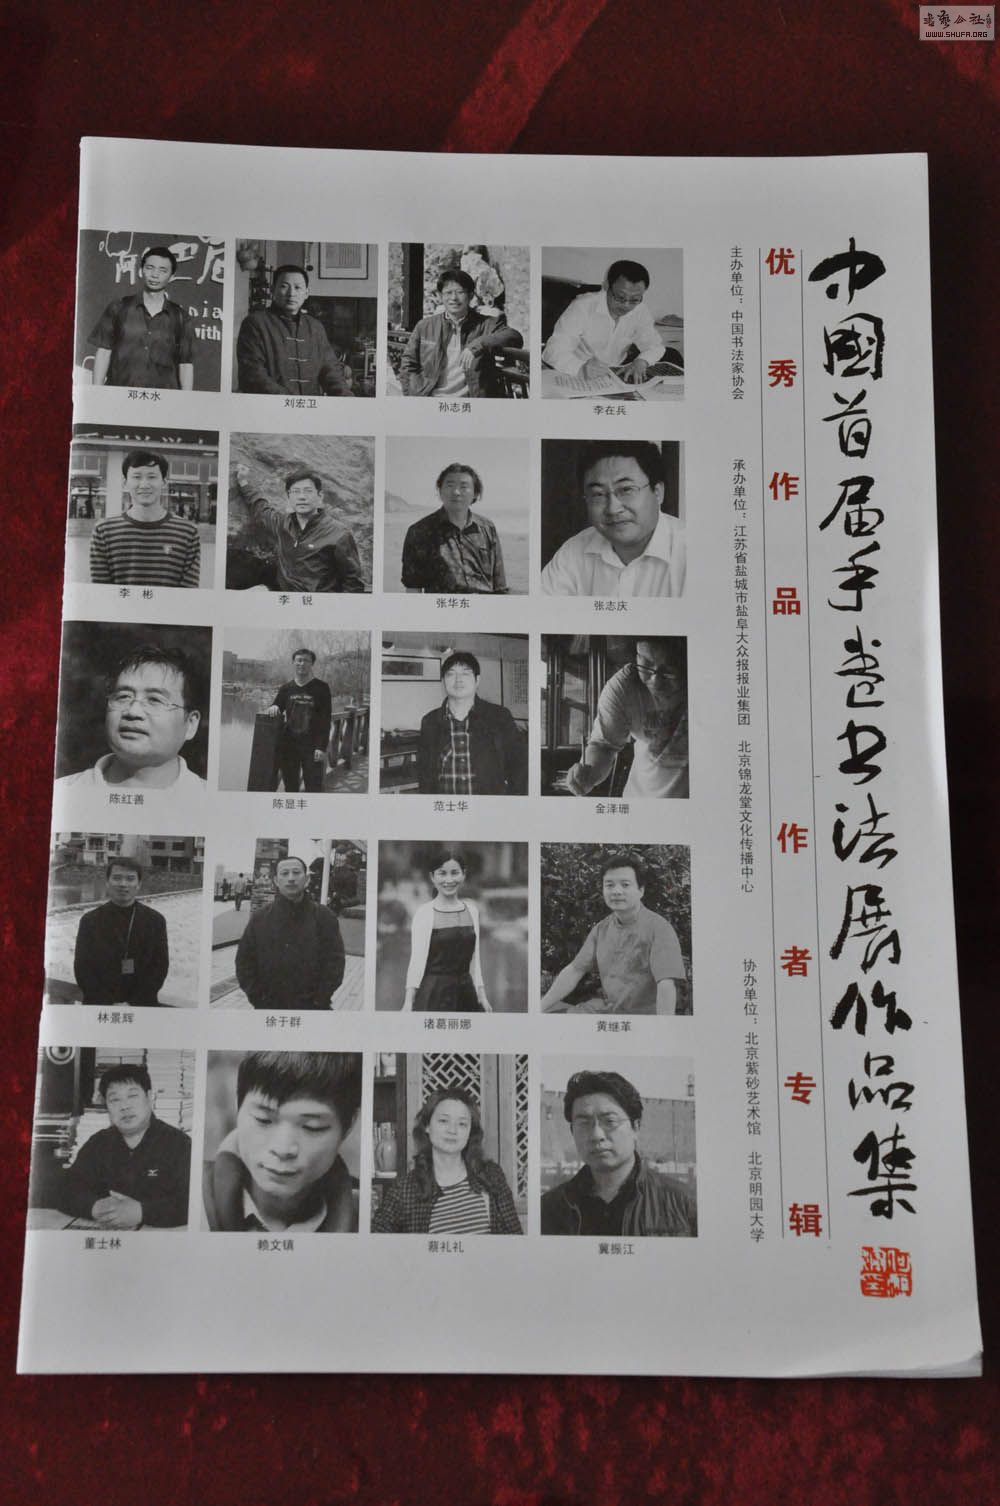 书艺公社
WWW.SHUFA.ORG
中國首届手卷书法展作品集
优秀作品作者专辑
主办单位：中国书法家协会
承办单位：江苏省盐城市盐阜大众报报业集团 北京锦龙堂文化传播中心
协办单位：北京紫砂艺术馆 北京明园大学
邓木水
刘宏卫
孙志勇
李在兵
李 彬
李 锐
张华东
张志庆
陈红善
陈显丰
范士华
金泽珊
林景辉
徐于群
诸葛丽娜
黄继革
董士林
赖文镇
蔡礼礼
冀振江